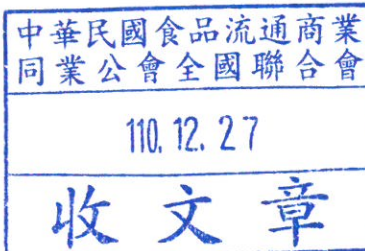 中華民國食品流通商業
同業公會全國聯合會
110.12.27
收文章